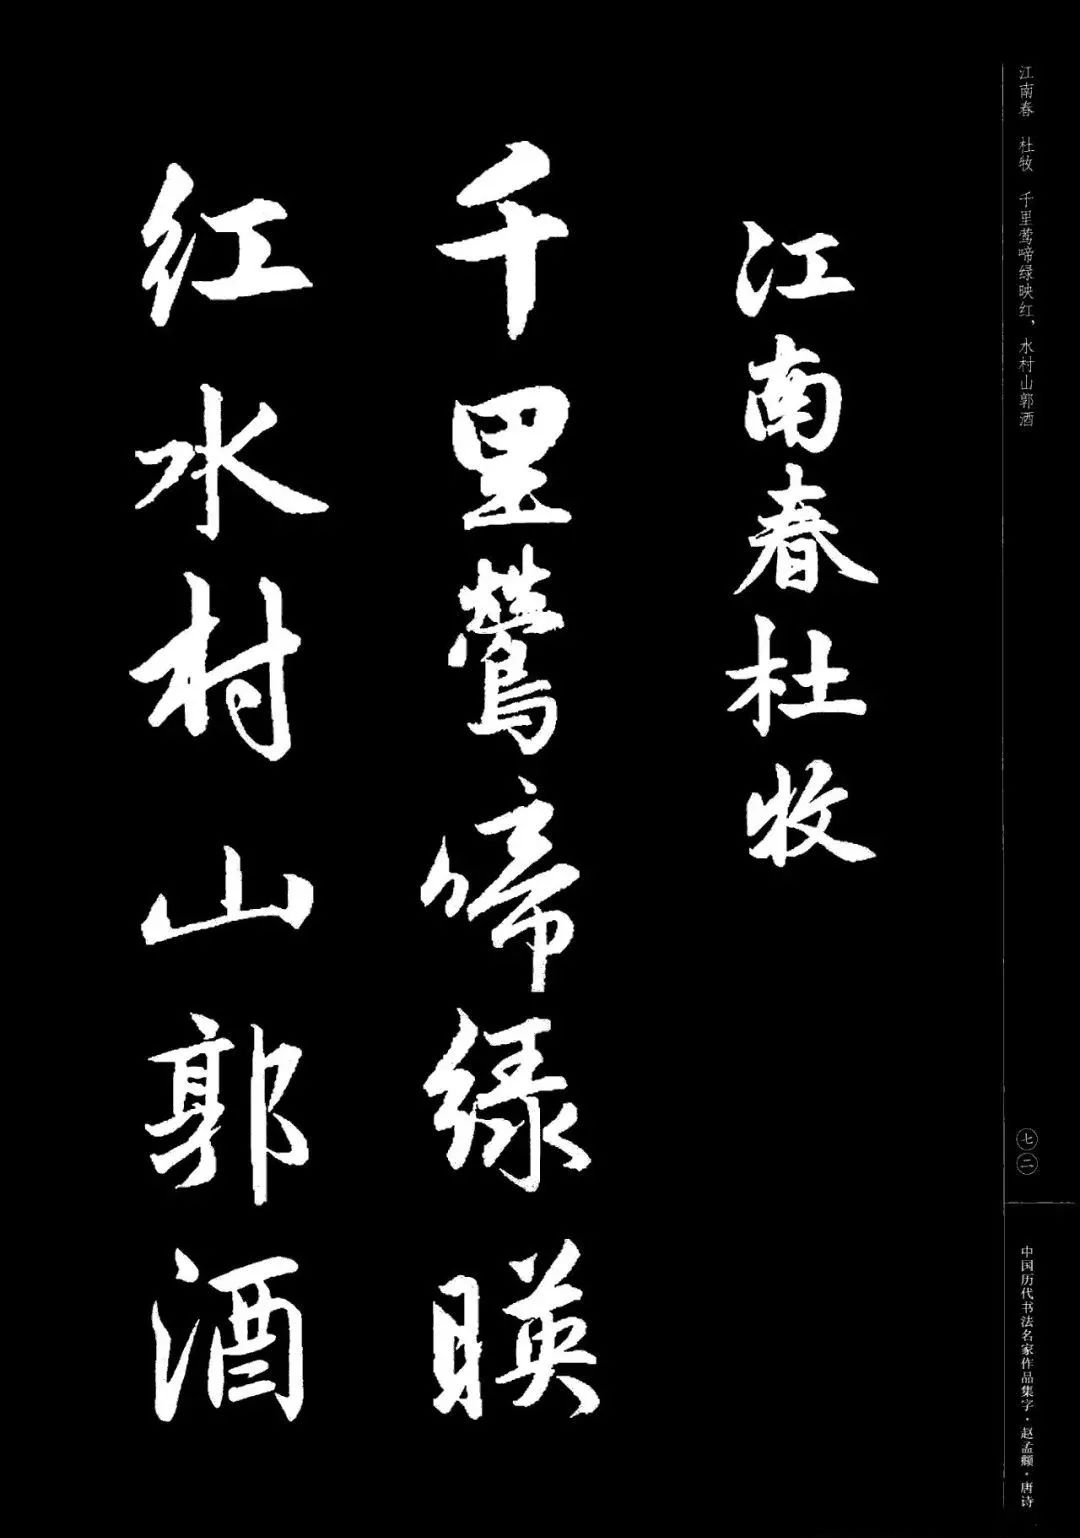 江南春　杜牧　千里莺啼绿映红，水村山郭酒
江南春杜牧
千里鶯啼緑暎
红水村山郭酒
七二
中国历代书法名家作品集字·赵孟頫·唐诗